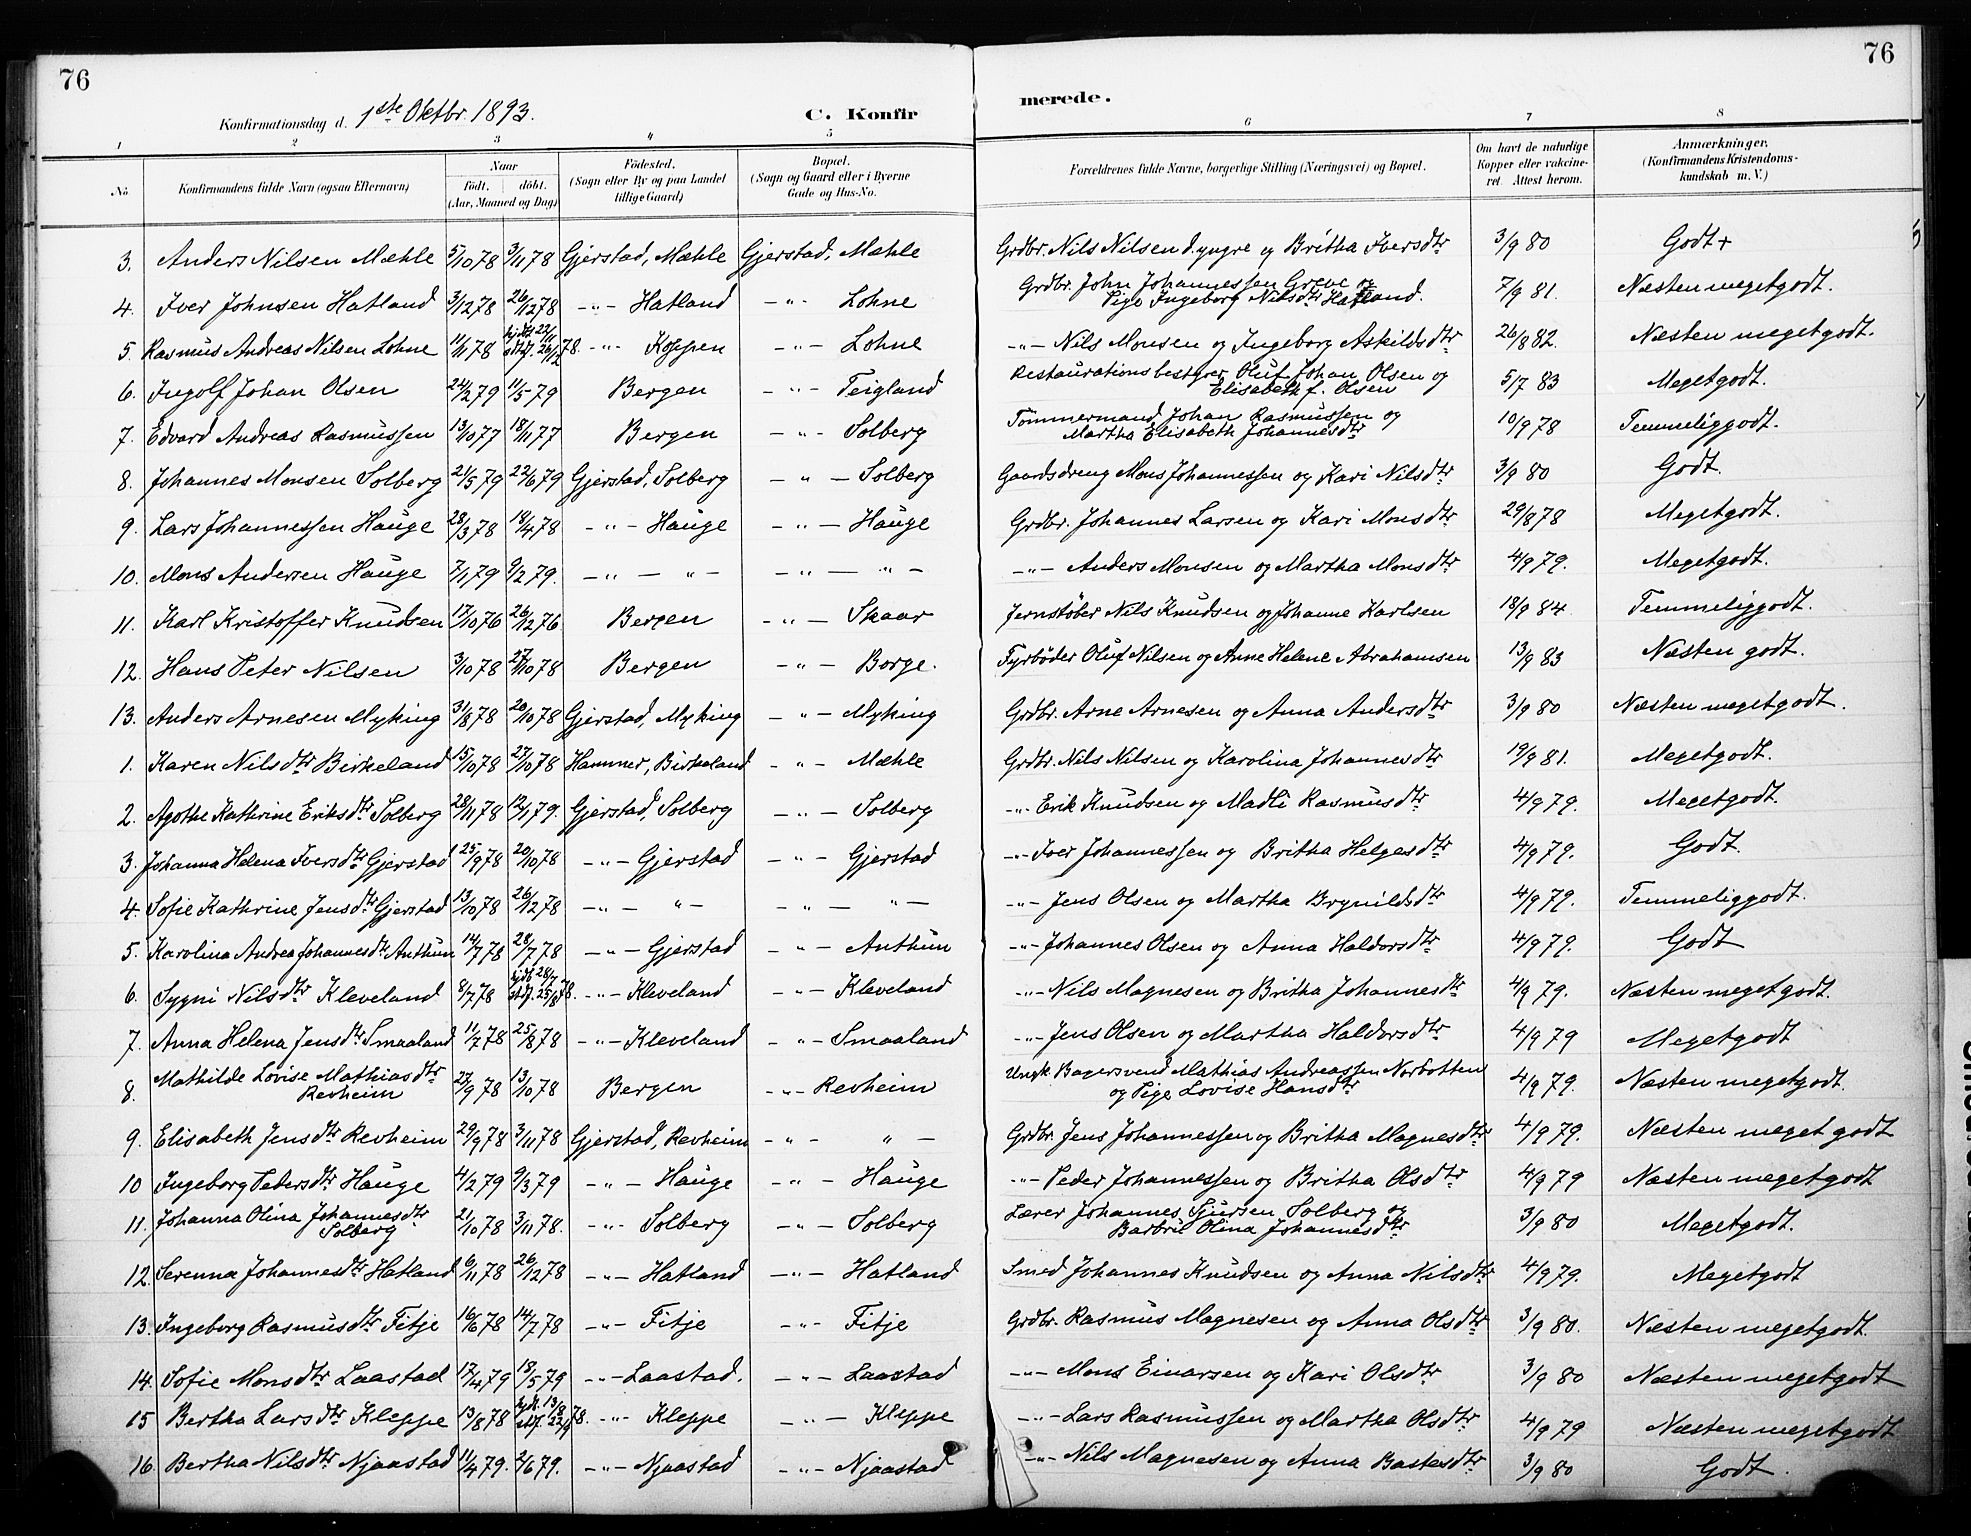 76
76
Konfirmationsdag d. 1ste Oktbr. 1893.
C. Konfirmerede.
1 2 3 4 5 6 7 8
No
Konfirmandens fulde Navn (ogsaa Efternavn)
Naar født. døbt. (Aar, Maaned og Dag)
Fødested. (Sogn eller By og paa Landet tillige Gaard)
Bopæl. (Sogn og Gaard eller i Byerne Gade og Hus-No.
Forældrenes fulde Navne, borgerlige Stilling (Næringsvei) og Bopæl.
Om havt de naturlige Kopper eller vakcineret. Attest herom.
Anmærkninger. (Konfirmandens Kristendomskundskab m. V.)
3. Anders Nilsen Mæhle 5/10 78 3/11 78 Gjerstad, Mæhle Gjerstad, Mæhle Grdbr. Nils Nilsen d. yngre og Britha Iversdtr 3/9 80 Godt+
4. Iver Johnsen Hatland 3/12 78 26/12 78 -"- Hatland -"- Lohne Grdbr. John Johannessen Greve og Pige Ingeborg Nilsdtr Hatland. 7/9 81. Næsten megetgodt.
5. Rasmus Andreas Nilsen Lohne 11/11 78 hjdbt 22/11 stdf. 26/12 78. -"- Koppen -"- Lohne -"- Nils Monsen og Ingeborg Askildsdtr 26/8 82. Næsten megetgodt.
6. Ingolf Johan Olsen 24/2 79 11/5 79 Bergen -"- Teigland Restaurationsbestyrer Oluf Johan Olsen og Elisabeth f. Olsen 5/7 83 Megetgodt.
7. Edvard Andreas Rasmussen 13/10 77 18/11 77 Bergen -"- Solberg Tømmermand Johan Rasmussen og Martha Elisabeth Johannesdtr 10/9 78 Temmeliggodt.
8. Johannes Monsen Solberg 21/5 79 22/6 79 Gjerstad, Solberg -"- Solberg Gaardsdreng Mons Johannessen og Kari Nilsdtr 3/9 80 Godt.
9. Lars Johannessen Hauge 28/3 78 18/4 78 -"- Hauge -"- Hauge Grdbr. Johannes Larsen og Kari Monsdtr 29/8 78 Megetgodt.
10. Mons Andersen Hauge 7/1 79 9/2 79. -"- "- -"- "- -"- Anders Monsen og Martha Monsdtr 4/9 79. Megetgodt.
11. Karl Kristoffer Knudsen 17/10 76 26/12 76 Bergen -"- Skaar Jernstøber Nils Knudsen og Johanne Karlsen 18/9 84. Temmeliggodt.
12. Hans Peter Nilsen 3/10 78 27/10 78 Bergen -"- Borge. Fyrbøder Oluf Nilsen og Anne Helene Abrahamsen 13/9 83 Næsten godt.
13. Anders Arnesen Myking 31/8 78 20/10 78 Gjerstad, Myking -"- Myking Grdbr. Arne Arnesen og Anna Andersdtr 3/9 80 Næsten megetgodt.
1. Karen Nilsdtr Birkeland 15/10 78 27/10 78 Hammer, Birkeland -"- Mæhle Grdbr. Nils Nilsen og Karolina Johannesdtr 19/9 81. Megetgodt.
2. Agothe Kathrine Eriksdtr Solberg 28/11 78 12/1 79. Gjerstad, Solberg -"- Solberg -"- Erik Knudsen og Madli Rasmusdtr 4/9 79. Megetgodt.
3. Johanna Helena Iversdtr Gjerstad 25/9 78 20/10 78 -"- Gjerstad -"- Gjerstad -"- Iver Johannessen og Britha Helgesdtr 4/9 79. Godt.
4. Sofie Kathrine Jensdtr Gjerstad 13/10 78 26/12 78 -"- "- -"- "- -"- Jens Olsen og Martha Brynildsdtr 4/9 79. Temmeliggodt.
5. Karolina Andrea Johannesdtr Anthun 14/7 78 28/7 78 -"- Gjerstad -"- Anthun -"- Johannes Olsen og Anna Haldorsdtr 4/9 79. Godt
6. Sygni Nilsdtr Kleveland 8/7 78 hjdbt 28/7 stdf. 25/8 78. -"- Kleveland -"- Kleveland -"- Nils Magnesen og Britha Johannesdtr 4/9 79. Næsten megetgodt.
7. Anna Helena Jensdtr Smaaland 11/7 78 25/8 78 -"- Kleveland -"- Smaaland -"- Jens Olsen og Martha Haldorsdtr 4/9 79 Megetgodt
8. Mathilde Lovise Mathiasdtr Revheim 27/9 78 13/10 78 Bergen -"- Revheim Ungk. Bagersvend Mathias Andreassen Norbotten og Pige Lovise Hansdtr 4/9 79. Næsten megetgodt.
9. Elisabeth Jensdtr Revheim 29/9 78 3/11 78 Gjerstad, Revheim -"- "- Grdbr. Jens Johannessen og Britha Magnesdtr 4/9 79. Næsten meget godt
10 Ingeborg Pedersdtr Hauge 4/2 79 9/3 79 -"- Hauge -"- Hauge -"- Peder Johannessen og Britha Olsdtr 4/9 79 Næsten megetgodt
11. Johanna Olina Johannesdtr Solberg 21/10 78 3/11 78. -"- Solberg -"- Solberg Lærer Johannes Sjursen Solberg og Barbril Olina Johannesdtr 3/9 80 Megetgodt.
12. Serenna Johannesdtr Hatland 6/11 78 26/12 78 -"- Hatland -"- Hatland Smed Johannes Knudsen og Anna Nilsdtr 4/9 79. Megetgodt
13. Ingeborg Rasmusdtr Fitje 16/6 78 14/7 78 -"- Fitje -"- Fitje Grdbr. Rasmus Magnesen og Anna Olsdtr 3/9 80. Næsten megetgodt
14. Sofie Monsdtr Laastad 17/4 79 18/5 79 -"- Laastad. -"- Laastad -"- Mons Einarsen og Kari Olsdtr 3/9 80 Næsten megetgodt
15 Bertha Larsdtr Kleppe 13/8 78 hjdt. 13/8 stdf. 22/9 78. -"- Kleppe -"- Kleppe -"- Lars Rasmussen og Martha Olsdtr 4/9 79 Næsten megetgodt
16. Bertha Nilsdtr Njaastad 11/4 79. 2/6 79. -"- Njaastad -"- Njaastad -"- Nils Magnesen og Anna Bastesdtr 3/9 80 Godt.